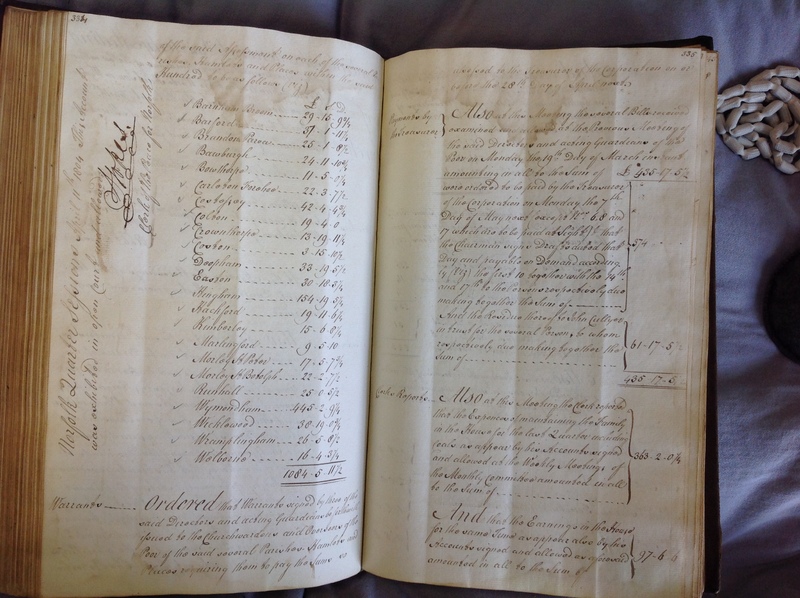 334
of the said Assessment on each of the several
Parishes Hamlets and Places within the said
Hundred to be as follows (Viz)
£ s D
Barnham Broom 29-15-9¾
Barford 37-1-11¼
Brandon Parva 25-1-8½
Bawburgh 24-11-10¾
Bowthorpe 11-5-0¼
Carleton Forehoe 22-3-7½
Costessey 42-4-4¾
Colton 19-4-0
Crownthorpe 13-19-11¼
Coston 3-15-10½
Deopham 33-19-5½
Easton 30-18-5¼
Hingham 154-19-5¼
Hackford 19-11-6¼
Kimberley 15-6-8¼
Marlingford 9-5-10
Morley St Peter 17-5-7¾
Morley St Botolph 22-2-7½
Runhall 25-0-5½
Wymondham 445-2-9¼
Wicklewood 30-19-0¼
Wramplingham 26-5-8½
Welborne 16-4-3¼
1084-5-11½
Norfolk Quarter Sessions
was exhibited in open Court and allowed
Clerk of the Peace for Norfolk
Warrants Ordered that Warrants signed by three of the
said Directors and acting Guardians be forthwith
issued to the Churchwardens and Overseers of the
Poor of the said several Parishes Hamlets and
Places requiring them to pay the Sums so
335
assessed to the Treasurer of the Corporation on or
before the 25th Day of April next
Payments by the Treasurer
Also at this Meeting the several Bills received
examined and allowed at the Previous Meeting of
the said Directors and acting Guardians of the
Poor on Monday the 19th Day of March instant
amounting in all to the Sum of £ 435-17-5½
were ordered to be paid by the Treasurer
of the Corporation on Monday the 7th
Day of May next except Nos. 6.8 and
17 which are to be paid at
the Chairman sign Drafts dated that
Day and payable on Demand according
ly (Viz) the first 10 together with the 14th
and 17th to the Persons respectively due
making together the Sum of
And the Residue thereof to John Cullyer
in trust for the several Persons to whom
respectively due making together the
Sum of 61-17-5
435-17-5
Clerks Reports Also at this Meeting the Clerk reported
that the Expences of maintaining the Family
in the House for the last Quarter including
Coals as appear by his Accounts signed
and allowed at the Weekly Meetings of
the Monthly Committees amounted in all
to the Sum of 363-2-0¼
And that the Earnings in the House
for the same Time as appear also by his
Accounts signed and allowed as aforesaid
amounted in all to the Sum of 97-6